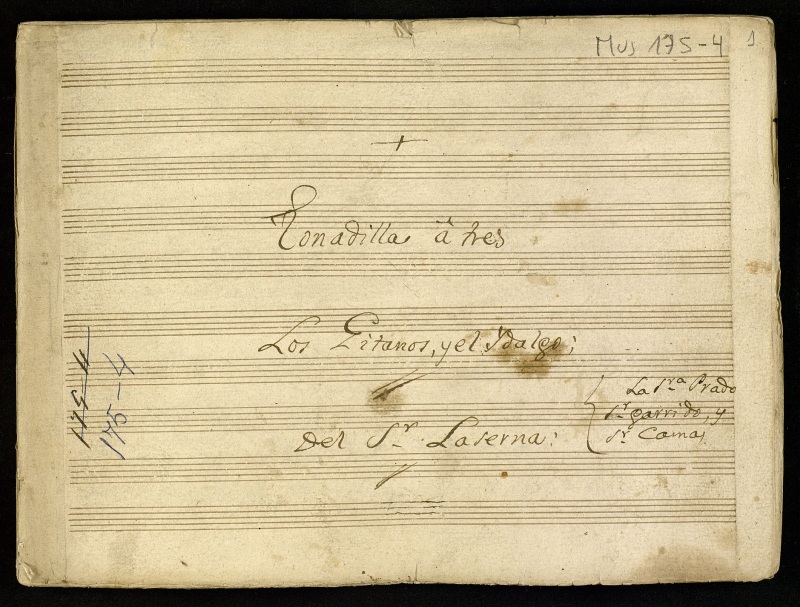 Mus 175-4
1
+
Tonadilla à tres
Los Gitanos, y el Ydalgo;
Del Sr. Laserna:
La Sra Prado
Sr. garrido, y
Sr. Camas
175-4
175-4